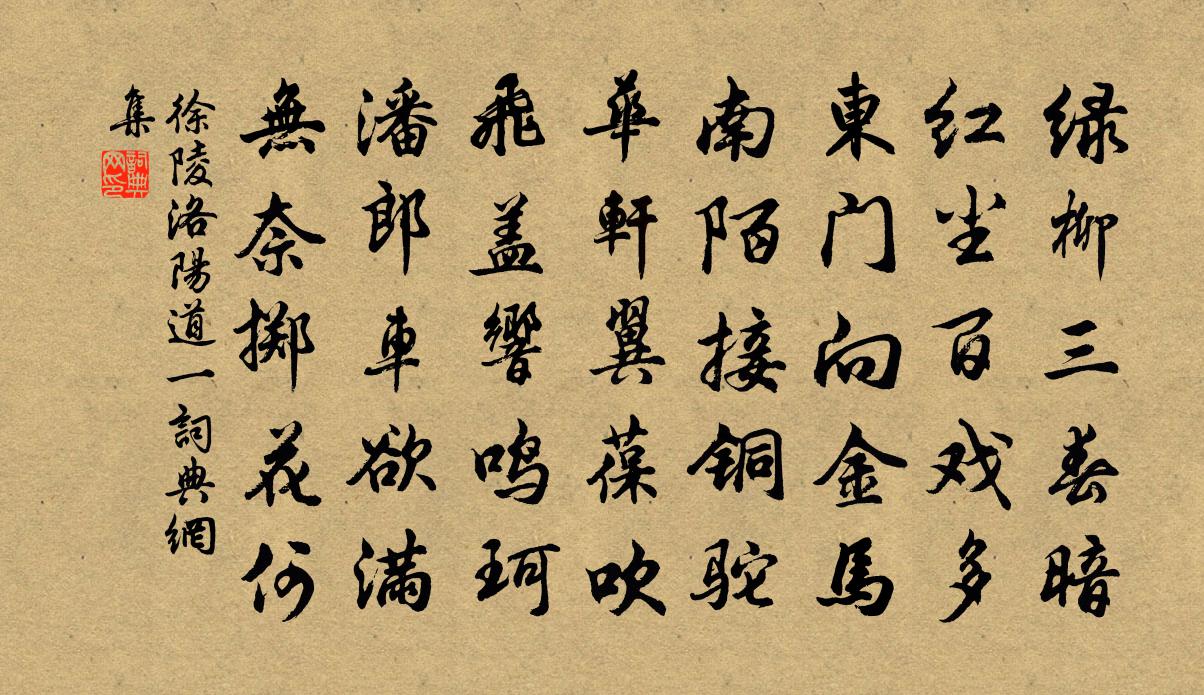 绿柳三春暗
红尘百戏多
東门向金馬
南陌接铜驼
華軒翼葆吹
飛盖響鸣珂
潘郎車欲满
無奈掷花何
徐陵洛陽道一詞典網
集
詞典网印